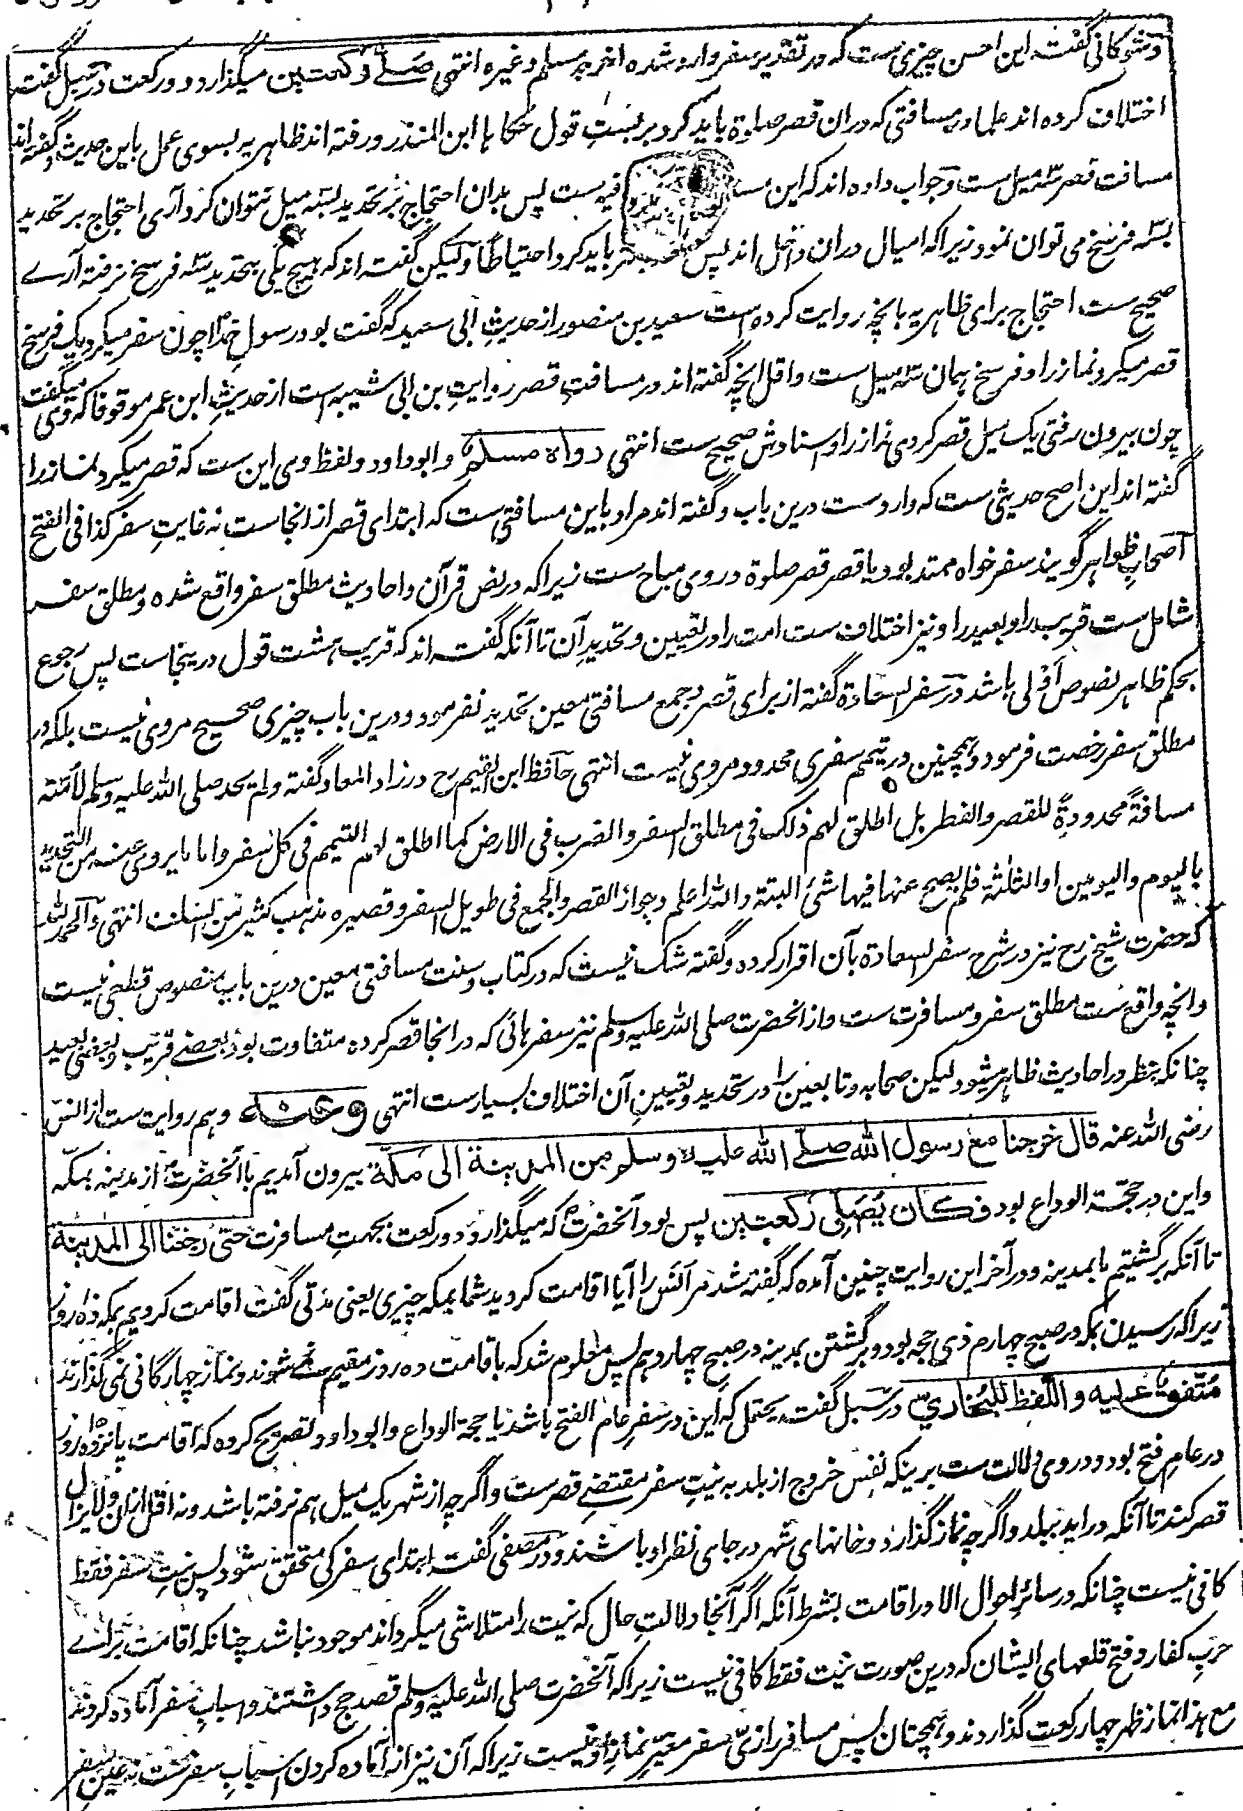 و شوکانی گفته این احسن چیزی ست که در تقدیر سفر وارد شده اخرجه مسلم و غیره انتهی صلے رکعتین میگذارد دو رکعت در سبل گفته
اختلاف کرده اند علما در مسافتی که دران قصر صلوة باید کرد بر بست قول حکاہا ابن المنذر و رفته اند ظاهریه بسوی عمل باین حدیث و گفته اند
مسافت قصر سه میل ست و جواب داده اند که این فیه ست پس بدان احتجاج بر تحدید بسه میل نتوان کرد آری احتجاج بر تحدید
بسه فرسخ می توان نمود زیرا که امیال دران داخل اند پس باید کرد احتیاطاً ولیکن گفته اند که هیچ یکی بتحدید سه فرسخ نرفته آرے
صحیح ست احتجاج برای ظاهریه بانچه روایت کرده است سعید بن منصور از حدیث ابی سعید که گفت بود رسول خدا چون سفر میکرد یک فرسخ
قصر میکرد نماز را و فرسخ همان سه میل ست و اقل انچه گفته اند در مسافت قصر روایت بن ابی شیبه است از حدیث ابن عمر موقوفا که وی میگفت
چون بیرون رفتی یک میل قصر کردی نماز را و اسنادش صحیح ست انتهی رواه مسلم و ابو داود و لفظ وی این ست که قصر میکرد نماز را
گفته اند این اصح حدیثی ست که وارد ست درین باب و گفته اند مراد باین مسافتی ست که ابتدای قصر ازانجاست نه غایت سفر کذا فی الفتح
اصحاب ظواهر گویند سفر خواه ممتد بود یا قصر قصر صلوة در وی مباح ست زیرا که در نص قرآن و احادیث مطلق سفر واقع شده و مطلق سفر
شامل ست قریب را و بعید را و نیز اختلاف ست امت را در تعیین و تحدید آن تا آنکه گفته اند که قریب هشت قول درینجاست پس رجوع
بحکم ظاهر نصوص اولی باشد در سفر السعادة گفته از برای قصر و جمع مسافتی معین تحدید نفرمود و درین باب چیزی صحیح مروی نیست بلکه در
مطلق سفر رخصت فرمود و همچنین در تیمم سفری محدود مروی نیست انتهی حافظ ابن القیم رح در زاد المعاد گفته ولم یحد صلی الله علیه وسلم لأمته
مسافةً محدودةً للقصر والفطر بل اطلق لهم ذلک فی مطلق السفر والضرب فی الارض کما اطلق لهم التیمم فی کل سفر واما ما یروی عنه من التحدید
بالیوم والیومین او الثلثة فلم یصح عنه فیها شئ البتة والله اعلم وجواز القصر والجمع فی طویل السفر وقصیره مذهب کثیر من السلف انتهی والحمد لله
که حضرت شیخ رح نیز در شرح سفر السعادة بآن اقرار کرده و گفته شک نیست که در کتاب و سنت مسافتی معین درین باب منصوص قطعی نیست
و انچه واقع ست مطلق سفر و مسافرت ست و از آنحضرت صلی الله علیه وسلم نیز سفرهائی که در انجا قصر کرده متفاوت بود بعضے قریب و بعضی بعید
چنانکه بنظر در احادیث ظاهر میشود لیکن صحابه و تابعین را در تحدید و تعیین آن اختلاف بسیارست انتهی وعنه و هم روایت ست از انس
رضی الله عنه قال خرجنا مع رسول الله صلے الله علیه وسلم من المدینة الی مکة بیرون آمدیم با آنحضرت از مدینه بمکه
و این در حجة الوداع بود فکان یصلی رکعتین پس بود آنحضرت که میگذارد دو رکعت بجهت مسافرت حتی رجعنا الی المدینة
تا آنکه برگشتیم ما بمدینه و در آخر این روایت چنین آمده که گفته شد مر انس را آیا اقامت کردید شما بمکه چیزی یعنی مدتی گفت اقامت کردیم بمکه ده روز
زیرا که رسیدن بمکه در صبح چهارم ذی حجه بود و برگشتن بمدینه در صبح چهاردهم پس معلوم شد که باقامت ده روز مقیم نمی شوند و نماز چهارگانی نمی گذارند
متفق علیه واللفظ للبخاری در سبل گفته یحتمل که این در سفر عام الفتح باشد یا حجة الوداع و ابو داود تصریح کرده که اقامت پانزده روز
در عام فتح بود و در وی دلالت ست برینکه نفس خروج از بلد به نیت سفر مقتضی قصر ست و اگرچه از شهر یک میل هم نرفته باشد و نه اقل ازان ولا یزال
قصر کند تا آنکه در آید ببلد و اگرچه نماز گذارد و خانهای شهر در جای نظر او باشند و در مصفی گفته ابتدای سفر کی متحقق شود پس نیت سفر فقط
کافی نیست چنانکه در سائر احوال الا در اقامت بشرط آنکه اگر آنجا دلالت حال که نیت را متلاشی میگرداند موجود نباشد چنانکه اقامت برائے
حرب کفار و فتح قلعهای ایشان که درین صورت نیت فقط کافی نیست زیرا که آنحضرت صلی الله علیه وسلم قصد حج داشتند و اسباب سفر آماده کردند
مع هذا نماز ظهر چهار رکعت گذاردند و همچنان پس مسافر را زی سفر مغیر نماز او نیست زیرا که آن نیز از آماده کردن اسباب سفرست نه عین سفر